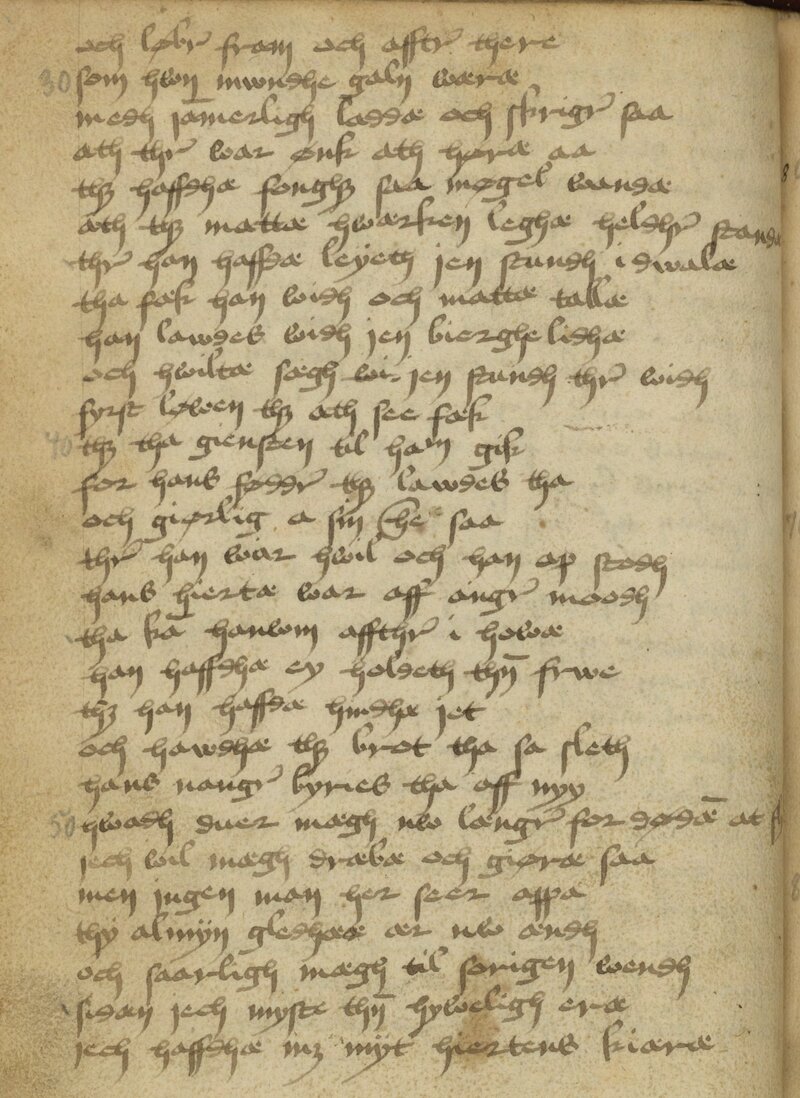 och løbr fram och afftr there
30 som hwn mwndhe galn wæræ
medh jamerligh laddæ och skrigr saa
ath thr war ønk ath høræ aa
thz haffdhæ fonghz saa møgel waandæ
æth thz mættæ hwærken leghæ heldhr standæ
thr han haffdæ leyeth jen stundh i dwalæ
tha fæk han widh och mattæ tallæ
han lawdes widh jen bierghelidhæ
och hwiltæ sægh wir jen stundh thr widh
fyrst løwen thz æth see fæk
40 thz tha giensten til ham gik
for hans føddr thz lawdes tha
och giørlig a sin he saa
thr han war hwil och han op stodh
hans hiertæ war aff angr moodh
tha ka hanwom affthr i howæ
han haffdhæ ey holdeth thn frwe
thz han haffdæ hindhæ jet
och hawdhæ thz brot tha sa sleth
hans nangr byries tha aff nyy
50 hwadh duer mægh nw længr for dødæ at
jech wil mægh dræbæ och giøræ saa
men jngen man her seer oppa
thy almyn gledhææ ær nw ændh
och saarligh mægh til sorigen wendh
sidæn jech myste thn hyweligh eræ
jech haffdhæ mz myt hiertens kiæræ